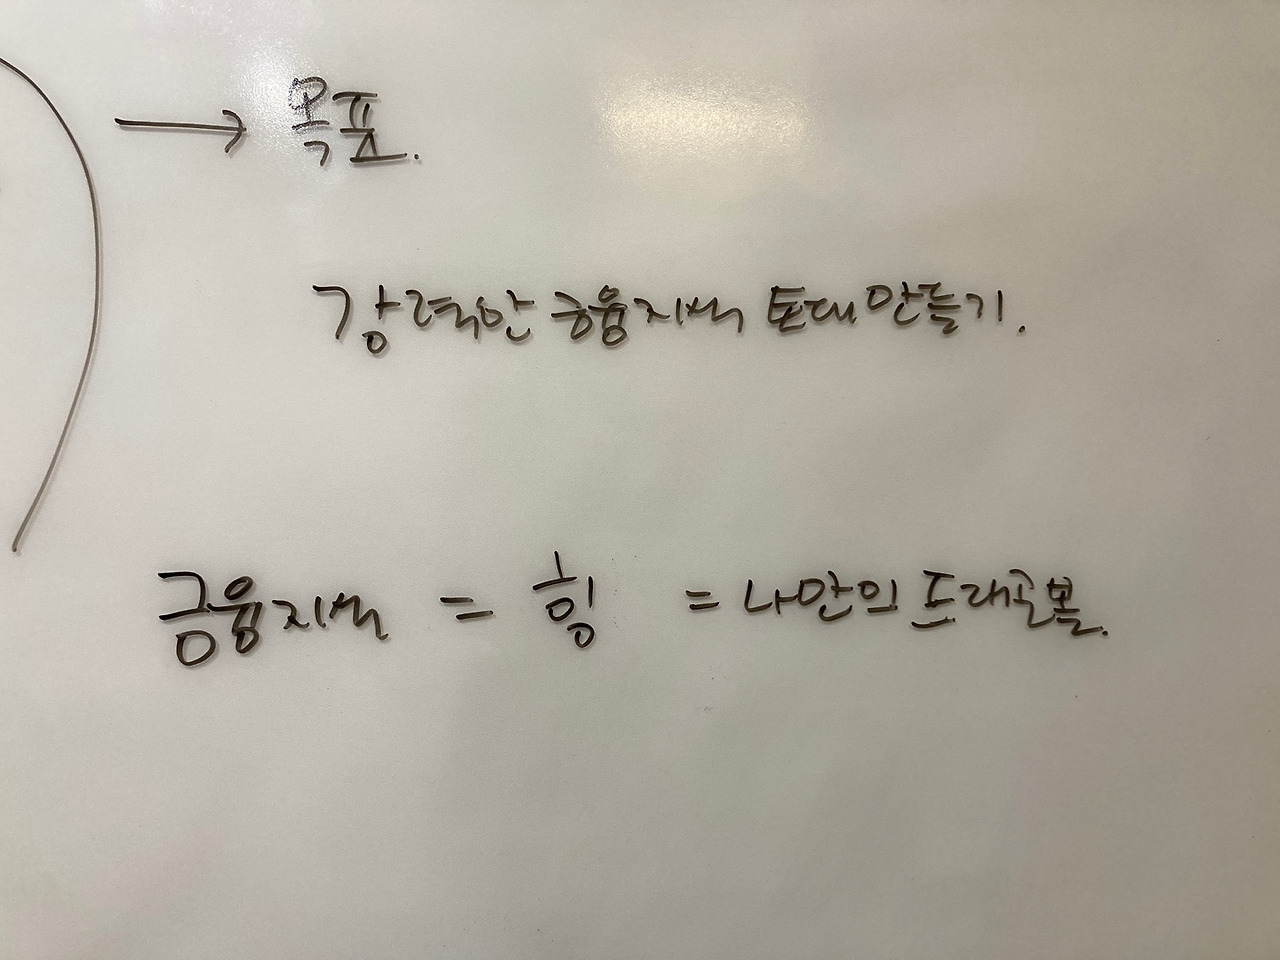 → 목표.
강력한 금융지식 토대 만들기.
금융지식 = 힘 = 나만의 드래곤볼.